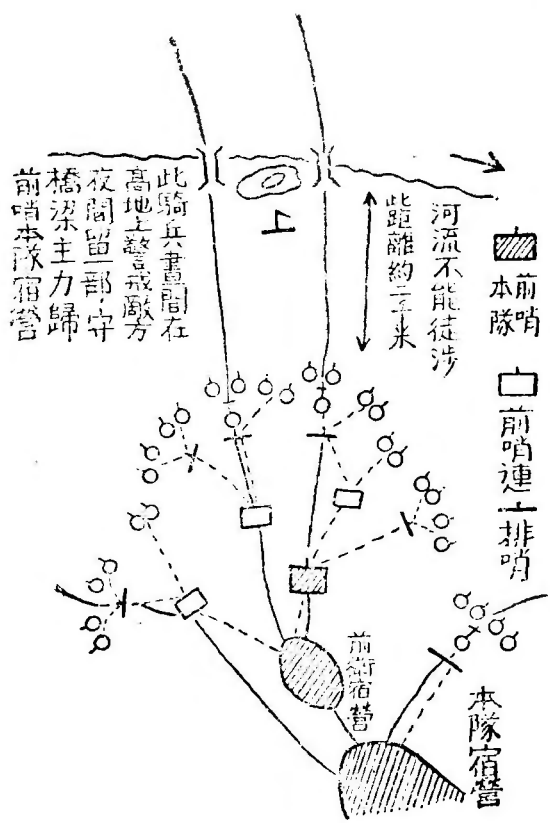 前哨本隊
前哨連
排哨
河流不能徒涉
此距離約二千米
此騎兵晝間在
高地上警戒敵方
夜間留一部守
橋梁主力歸
前哨本隊宿營
前衛宿營
本隊宿營